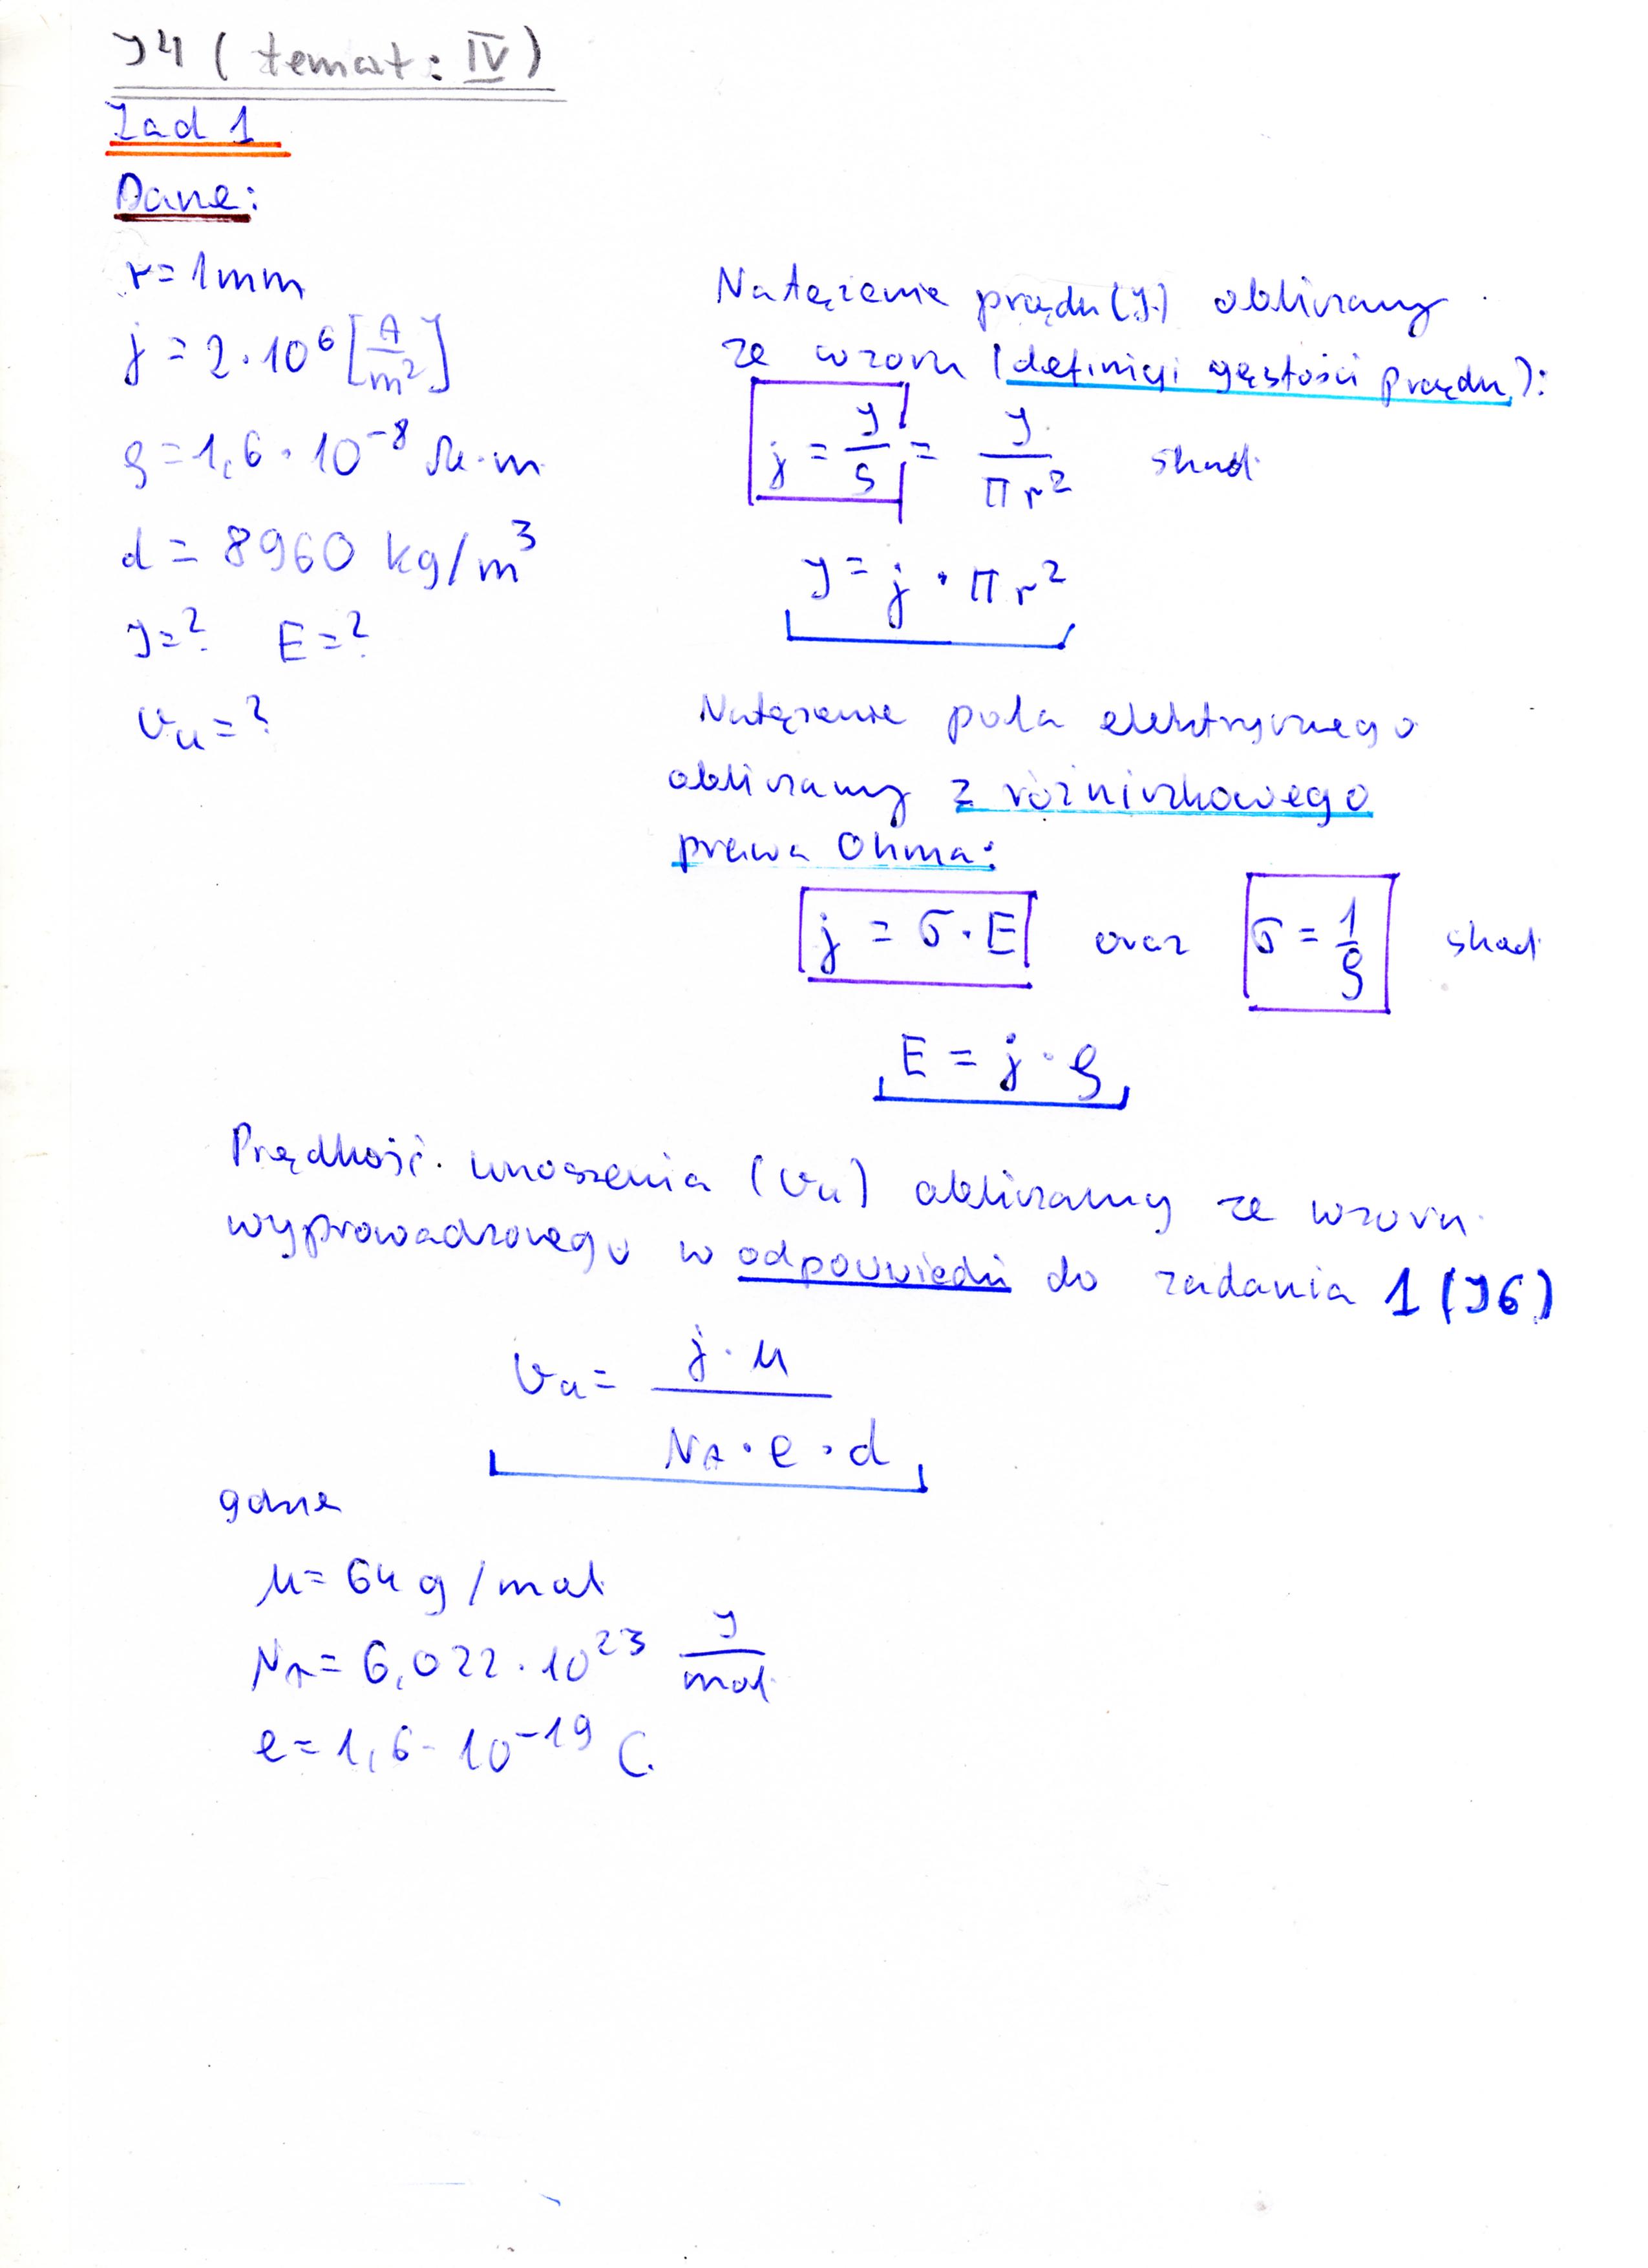 J4 (temat: IV)
Zad 1
Dane:
r = 1mm
j = 2·10⁶ [A/m²]
ρ = 1,6·10⁻⁸ Ω·m
d = 8960 kg/m³
J = ? E = ?
vᵤ = ?
Natężenie prądu (J) obliczamy
ze wzoru (definicji gęstości prądu):
j = J/S = J/πr² skąd
J = j·πr²
Natężenie pola elektrycznego
obliczamy z różniczkowego
prawa Ohma:
j = σ·E oraz σ = 1/ρ skąd
E = j·ρ
Prędkość unoszenia (vᵤ) obliczamy ze wzoru
wyprowadzonego w odpowiedzi do zadania 1 (J6)
vᵤ = j·μ / N_A·e·d
gdzie
μ = 64 g/mol
N_A = 6,022·10²³ 1/mol
e = 1,6·10⁻¹⁹ C.